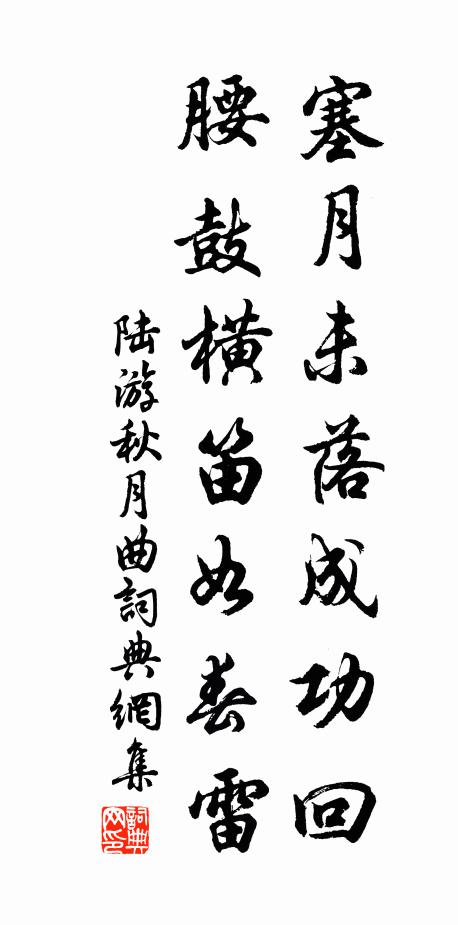 塞月未落成功回
腰鼓橫笛如春雷
陸游秋月曲詞典網集
詞典网印